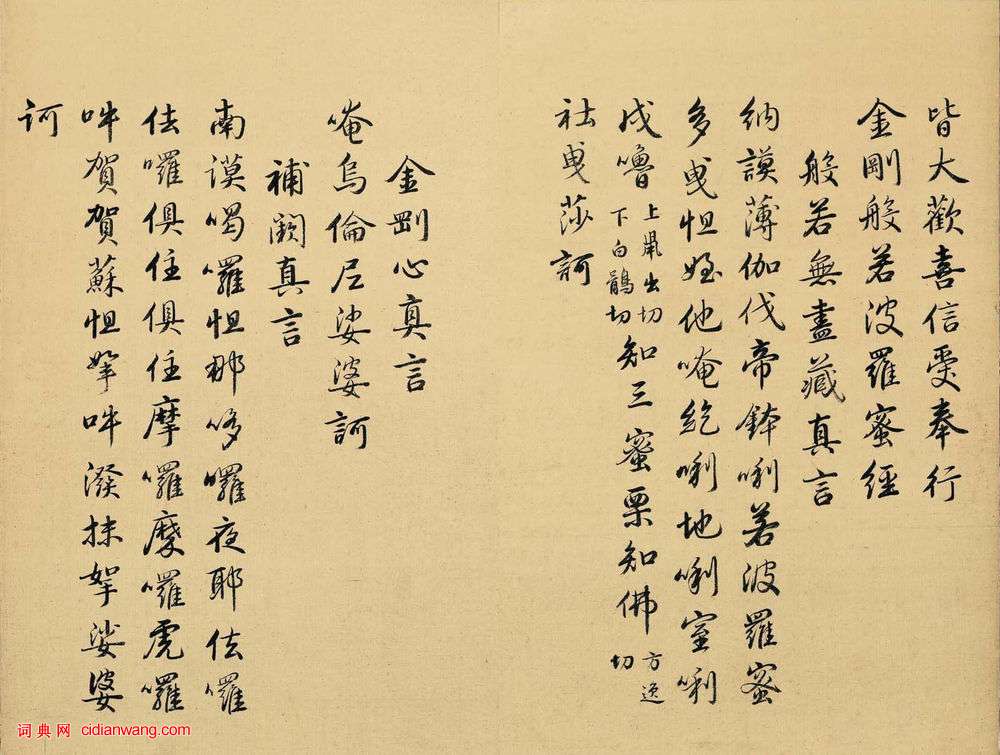 皆大歡喜信受奉行
金剛般若波羅蜜經
般若無盡藏真言
納謨薄伽伐帝鉢唎若波羅蜜
多曳怛姪他唵紇唎地唎室唎
戍嚕上聲出切下白鶻切知三蜜栗知佛方逸切
社曳莎訶
金剛心真言
唵烏倫尼娑婆訶
補闕真言
南謨喝囉怛那哆囉夜耶佉囉
佉囉俱住俱住摩囉摩囉虎囉
吽賀賀蘇怛拏吽潑抹拏娑婆
訶
词典网 cidianwang.com